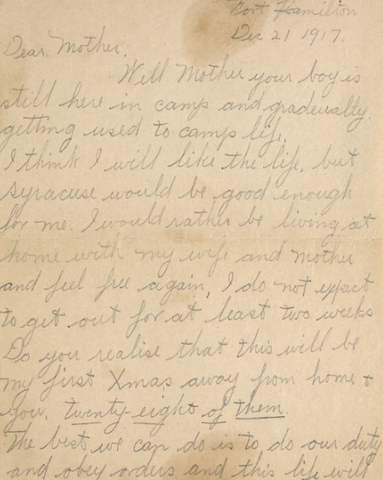 Fort Hamilton
Dec 21 1917.
Dear Mother;
Well Mother your boy is
still here in camp and gradeually
getting used to camp life,
I think I will like the life, but
Syracuse would be good enough
for me. I would rather be living at
home with my wife and mother
and feel free again, I do not expect
to get out for at least two weeks
Do you realise that this will be
my first Xmas away from home &
you, twenty-eight of them.
The best we can do is to do our duty
and obey orders and this life will